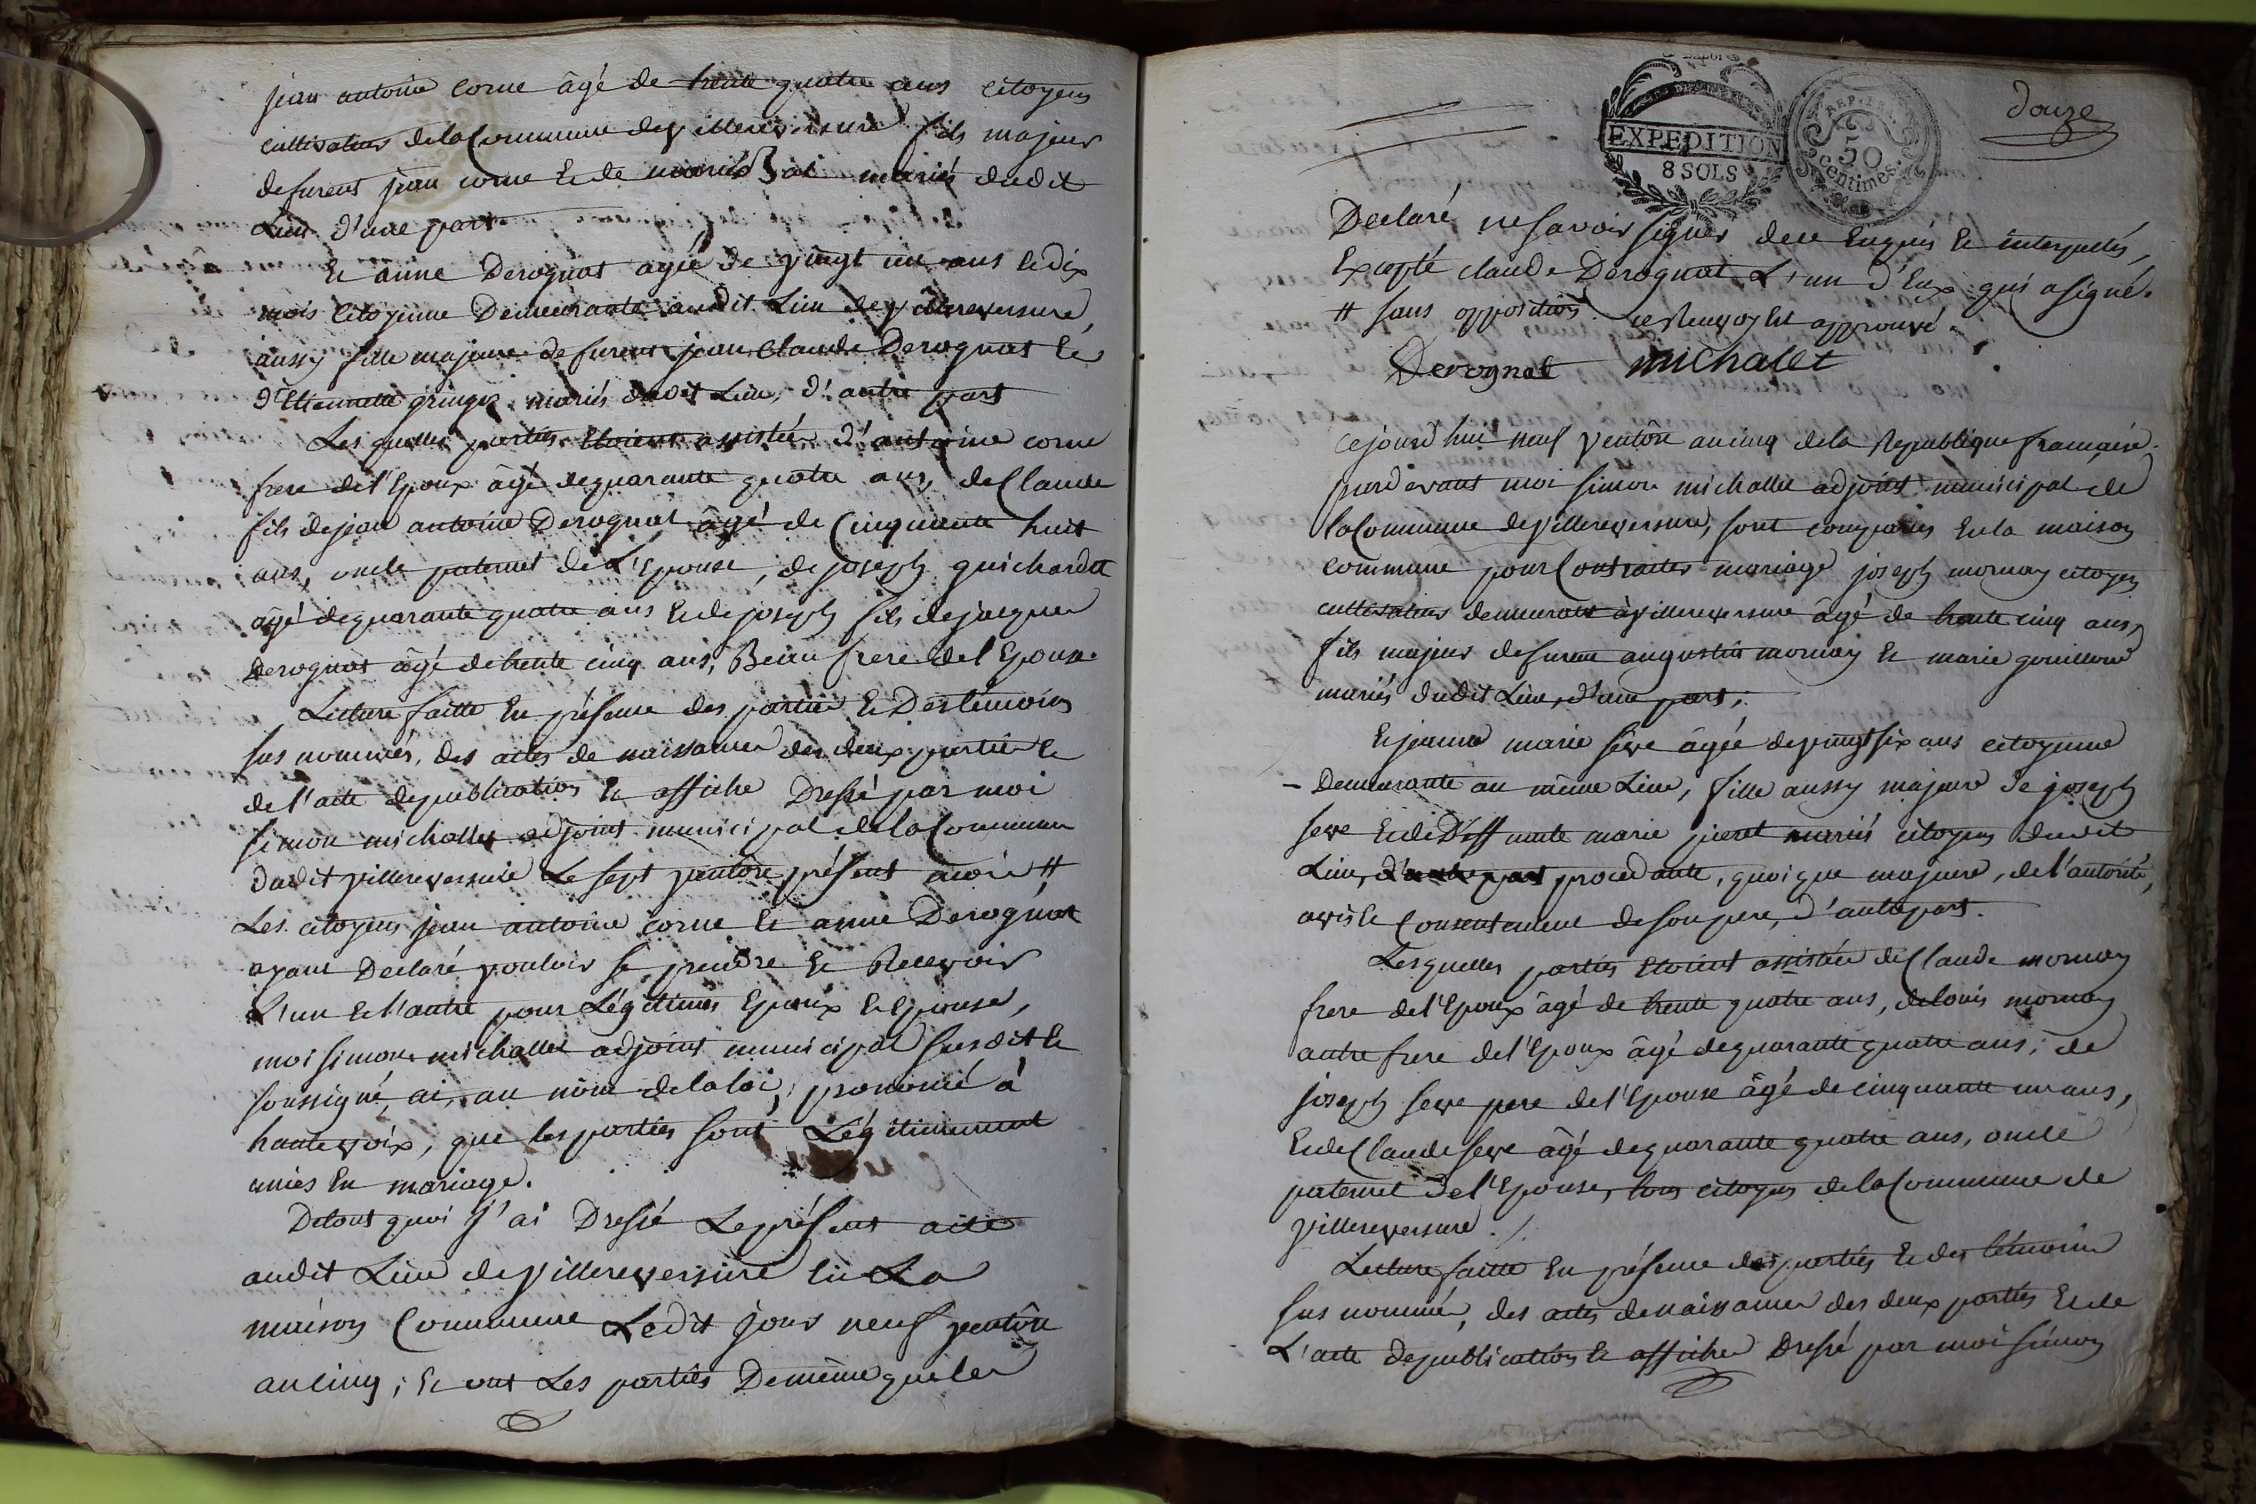 jean antoine corne âgé de trente quatre ans citoyen
cultivateur de la Commune de villereversure fils majeur
de furent jean corne Et de mariés dudit
Lieu d'une part
Et anne Derognat agée de vingt un ans Et dix
mois Citoyenne Demeurante audit Lieu de villereversure
aussy fille majeure de furent jean Claude Derognat Et
d'Etiennette gringoz mariés dudit Lieu, d'autre part
Lesquelles parties Etoient assistées d'antoine corne
frere de l'Epoux âgé de quarante quatre ans, de Claude
fils de jean antoine Derognat âgé de Cinquante huit
ans, oncle paternel de L'Epouse, de joseph guichardet
âgé de quarante quatre ans Et de joseph fils de jacques
Derognat âgé de trente cinq ans, Beau frere de l'Epouse.
Lecture faitte En présence des parties Et Des témoins
sus nommés, des actes de naissances des deux parties Et
de l'acte de publication Et affiche Dressé par moi
simon michallet adjoint municipal de la Commune
dudit villereversure Le sept ventôse présent mois #
Les citoyens jean antoine corne Et anne Derognat
ayant Declaré vouloir se prendre Et Recevoir
L'un Et l'autre pour Légitimes Epoux Et Epouse,
moi simon michallet adjoint municipal susdit Et
soussigné, ai, au nom de la loi, prononcé à
haute voix, que les parties sont Légitimement
unies En mariage.
De tout quoi j'ai Dressé Le présent acte
audit Lieu de villereversure En La
maison Commune Ledit jour neuf ventôse
an cinq; Et ont Les parties De même que les
EXPEDITION
8 SOLS
50
Centimes
douze
Declaré ne savoir signer de ce Enquis Et interpellés,
Excepté claude Derognat L'un d'Eux qui a signé.
# sans opposition ce Renvoy Est approuvé.
Derognat michalet
ce jourd'hui neuf ventôse an cinq de la Republique francaise.
pardevant moi simon michallet adjoint municipal de
la Commune de villereversure, sont comparus En la maison
commune pour Contracter mariage joseph mornay citoyen
cultivateur demeurant à villereversure âgé de trente cinq ans,
fils majeur de furent augustin mornay Et marie gouilloud
mariés dudit Lieu, d'une part;
Et jeanne marie seve âgée de vingt six ans citoyenne
- Demeurante au même Lieu, fille aussy majeure de joseph
seve Et de Deffunte marie mariés citoyens dudit
Lieu, d'autre part procédante, quoique majeure, de l'autorité,
avis Et Consentement de son pere, d'autre part.
Lesquelles parties Etoient assistées de Claude mornay
frere de l'Epoux âgé de trente quatre ans, de louis mornay
autre frere de l'Epoux âgé de quarante quatre ans; de
joseph seve pere de l'Epouse âgé de cinquante un ans,
Et de Claude seve âgé de quarante quatre ans, oncle
paternel de l'Epouse, tous citoyens de la Commune de
villereversure ./.
Lecture faitte En présence des parties Et des témoins
sus nommés, des actes de naissances des deux parties Et de
L'acte de publication Et affiche Dressé par moi simon